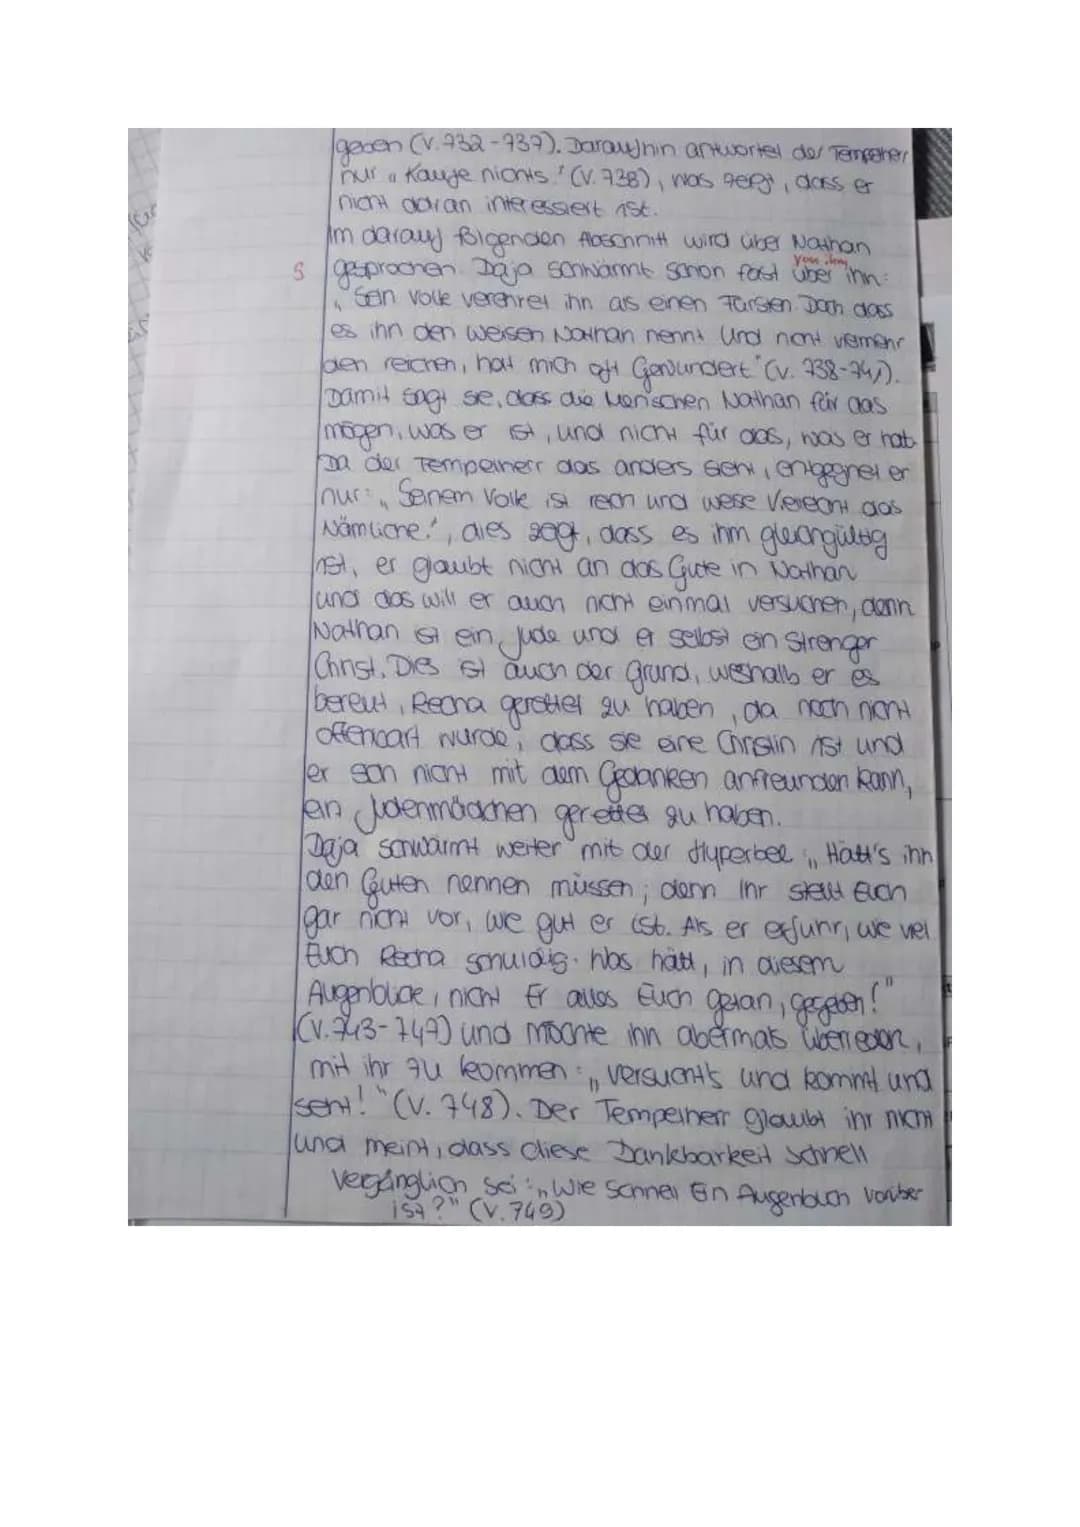 geben (V. 732-737). Daraufhin antwortet der Tempelherr
nur „Kaufe nichts." (V. 738), was zeigt, dass er
nicht daran interessiert ist.
Im darauf folgenden Abschnitt wird über Nathan
von ihm
S gesprochen. Daja schwärmt schon fast über ihn:
„Sein Volk verehret ihn als einen Fürsten. Doch dass
es ihn den Weisen Nathan nennt Und nicht vielmehr
den reichen, hat mich oft Gewundert" (V. 738-741).
Damit sagt sie, dass die Menschen Nathan für das
mögen, was er ist, und nicht für das, was er hat.
Da der Tempelherr das anders sieht, entgegnet er
nur: „Seinem Volk ist reich und weise Vielleicht das
Nämliche.", dies zeigt, dass es ihm gleichgültig
ist, er glaubt nicht an das Gute in Nathan
und das will er auch nicht einmal versuchen, denn
Nathan ist ein Jude und er selbst ein strenger
Christ. Dies ist auch der Grund, weshalb er es
bereut, Recha gerettet zu haben, da noch nicht
offenbart wurde, dass sie eine Christin ist und
er sich nicht mit dem Gedanken anfreunden kann,
ein Judenmädchen gerettet zu haben.
Daja schwärmt weiter mit der Hyperbel: „Hätt's ihn
den Guten nennen müssen; denn Ihr stellt Euch
gar nicht vor, wie gut er ist. Als er erfuhr, wie viel
Euch Recha schuldig. Was hätt, in diesem
Augenblicke, nicht Er alles Euch getan, gegeben!"
(V. 743-747) und möchte ihn abermals überreden,
mit ihr zu kommen: „Versucht's und kommt und
seht!" (V. 748). Der Tempelherr glaubt ihr nicht
und meint, dass diese Dankbarkeit schnell
Vergänglich sei: „Wie schnell Ein Augenblick vorüber
ist?" (V. 749)